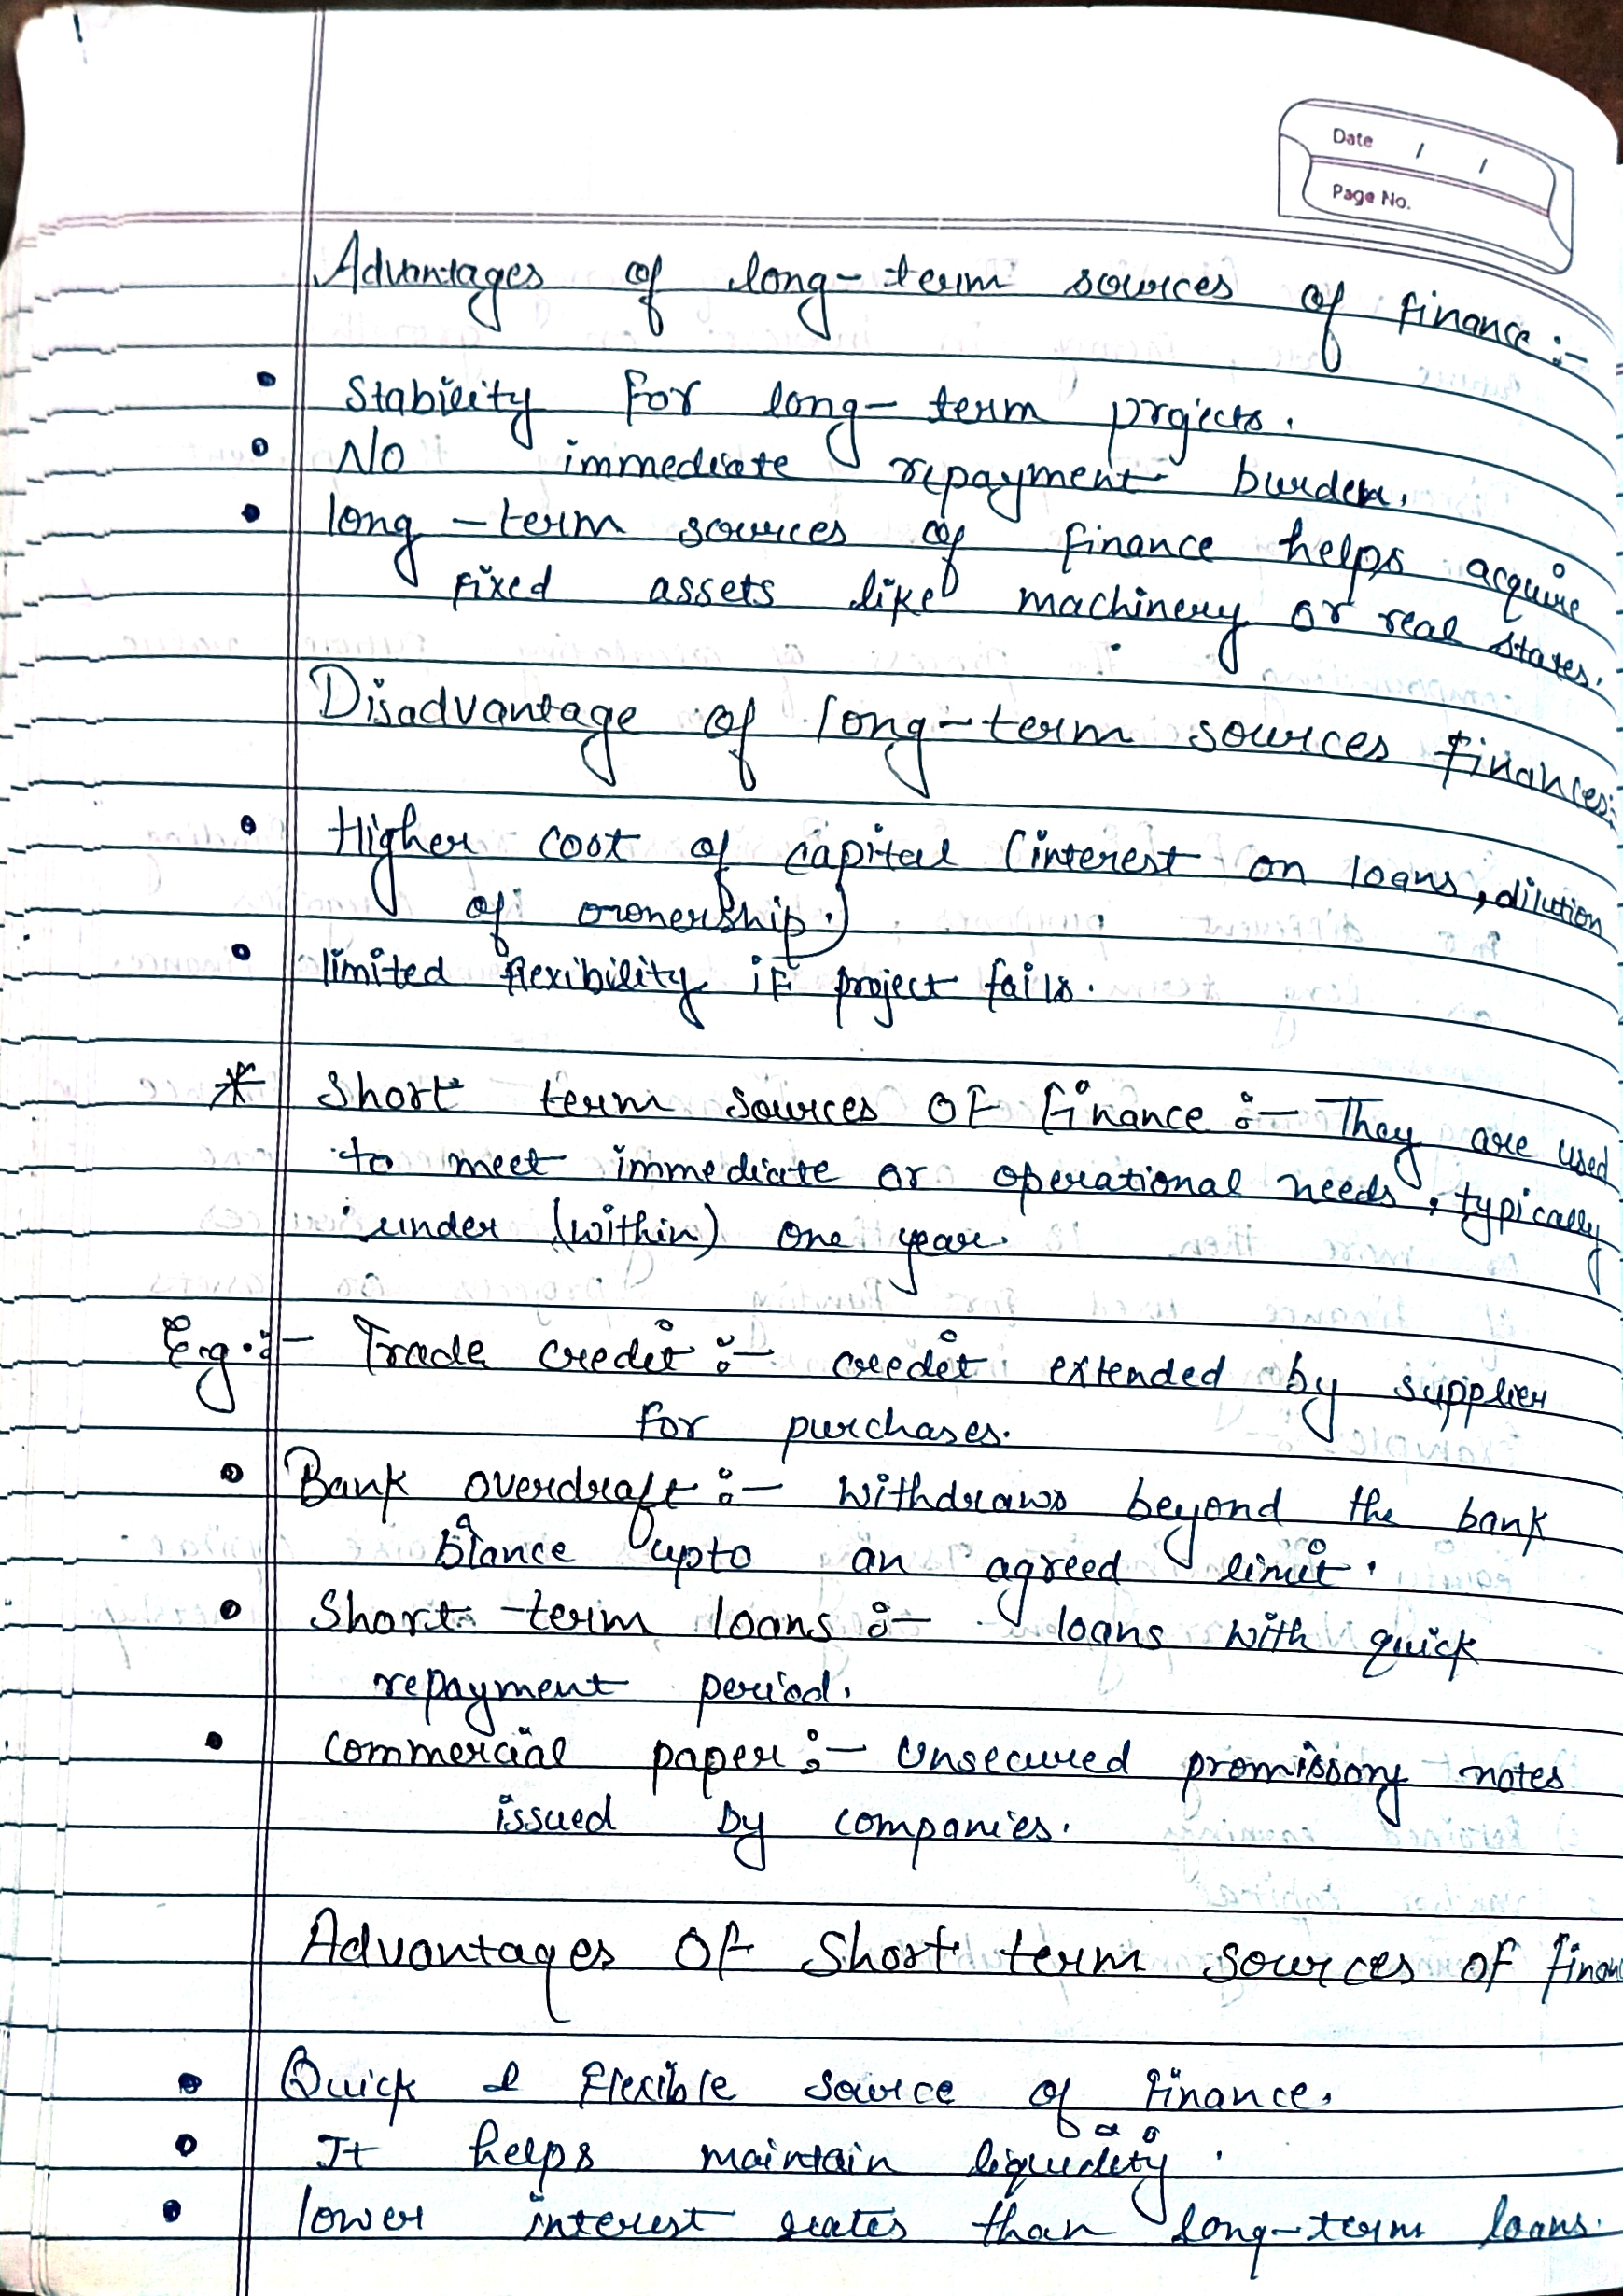 Date / /
Page No.
Advantages of long-term sources of finance :-
• Stability for long-term projects.
• No immediate repayment burden.
• long-term sources of finance helps acquire
fixed assets like machinery or real states.
Disadvantage of long-term sources finances:
• Higher cost of capital (interest on loans, dilution
of ownership.)
• limited flexibility if project fails.
* Short term sources of finance :- They are used
to meet immediate or operational needs, typically
under (within) one year.
E.g. :- Trade credit :- credit extended by supplier
for purchases.
• Bank overdraft :- withdraws beyond the bank
blance upto an agreed limit.
• Short-term loans :- loans with quick
repayment period.
• Commercial paper :- Unsecured promissory notes
issued by companies.
Advantages of Short term sources of finan
• Quick & flexible source of finance.
• It helps maintain liquidity.
• lower interest rates than long-term loans.